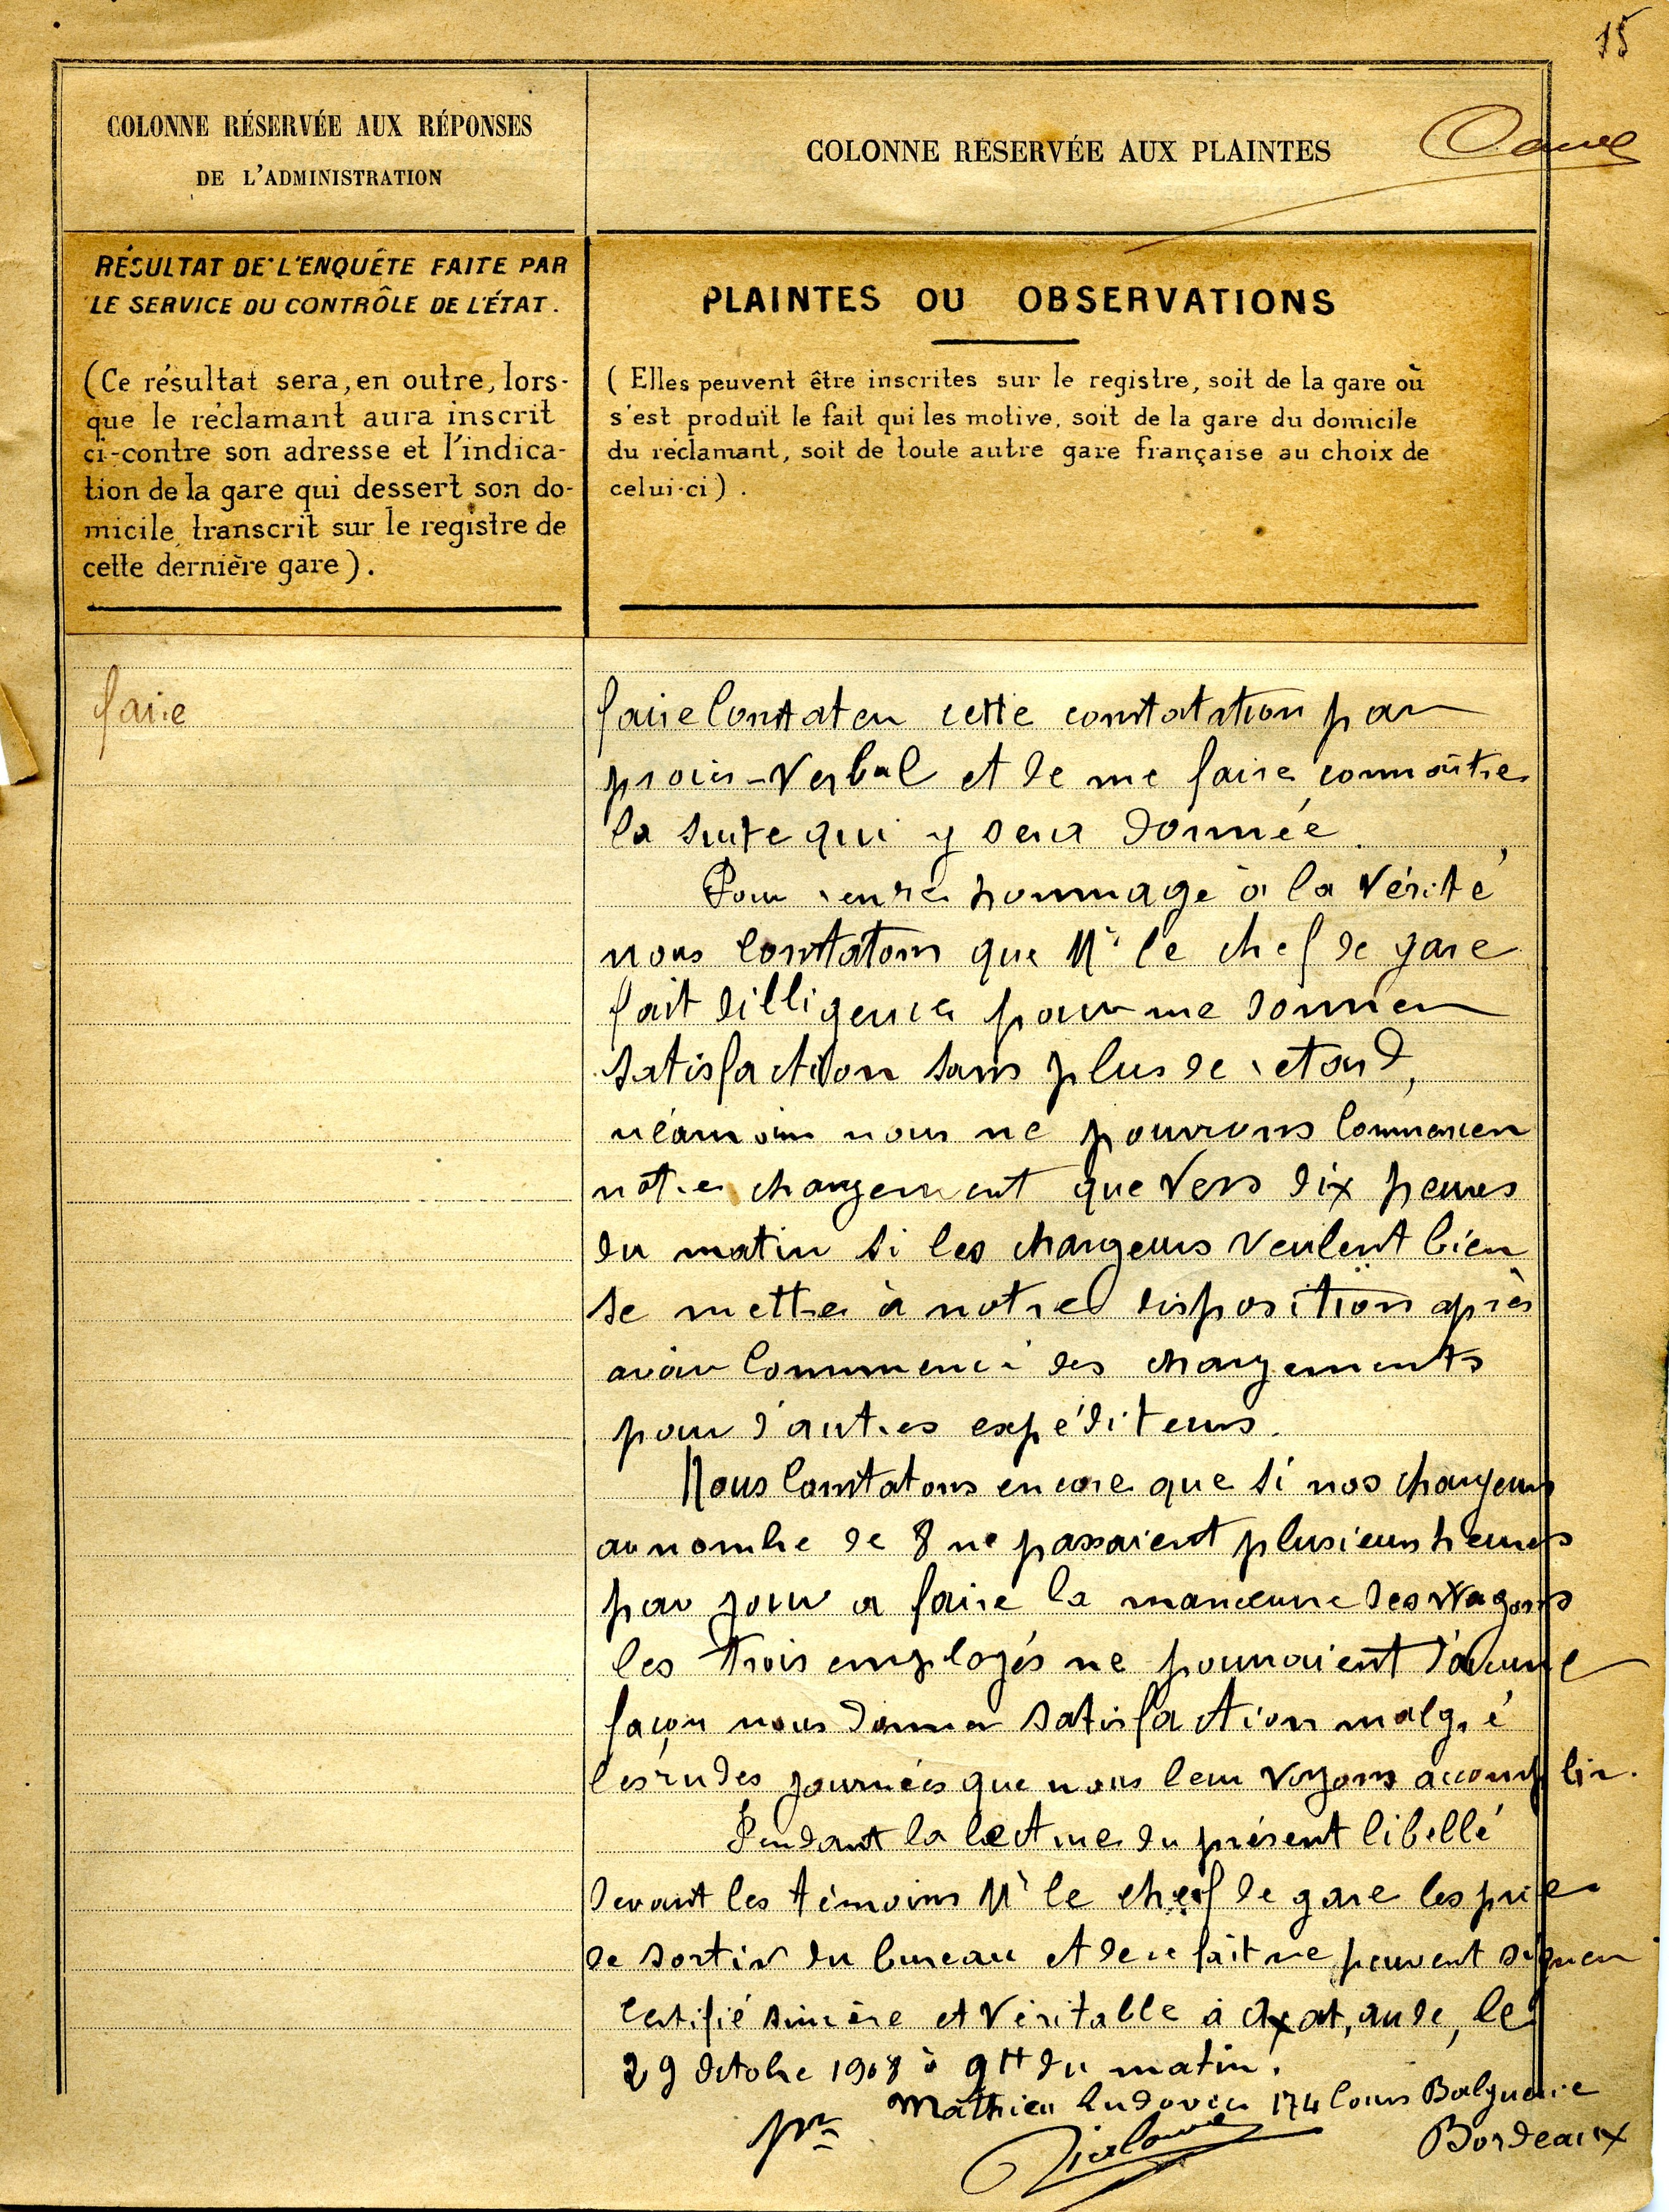 15
COLONNE RÉSERVÉE AUX RÉPONSES
DE L'ADMINISTRATION
COLONNE RÉSERVÉE AUX PLAINTES
RÉSULTAT DE L'ENQUÊTE FAITE PAR
LE SERVICE DU CONTRÔLE DE L'ÉTAT.
(Ce résultat sera, en outre, lors-
que le réclamant aura inscrit
ci-contre son adresse et l'indica-
tion de la gare qui dessert son do-
micile, transcrit sur le registre de
cette dernière gare).
PLAINTES OU OBSERVATIONS
(Elles peuvent être inscrites sur le registre, soit de la gare où
s'est produit le fait qui les motive, soit de la gare du domicile
du réclamant, soit de toute autre gare française au choix de
celui-ci).
faire
faire Constater cette constatation par
procès-Verbal et de me faire connaître
la suite qui y sera donnée.
Pour rendre hommage à la Vérité
nous Constatons que Mr le chef de gare
fait dilligence pour me donner
satisfaction sans plus de retard,
néamoins nous ne pourrons Commencer
notre chargement que Vers dix heures
du matin si les chargeurs Veulent bien
se mettre à notre disposition après
avoir Commencé des chargements
pour d'autres expéditeurs.
Nous Constatons encore que si nos chargeurs
au nombre de 8 ne passaient plusieurs heures
par jour a faire la manœuvre des Wagons
les trois employés ne pourraient d'aucune
façon nous donner satisfaction malgré
les rudes journées que nous leur Voyons accomplir.
Pendant la lecture du présent libellé
devant les témoins Mr le chef de gare les prie
de sortir du bureau et de ce fait ne peuvent signer
Certifié sincère et Véritable à Axat, aude, le
29 octobre 1908 à 9H du matin.
Mathieu Ludovic 174 Cours Balguerie
pr
Bordeaux